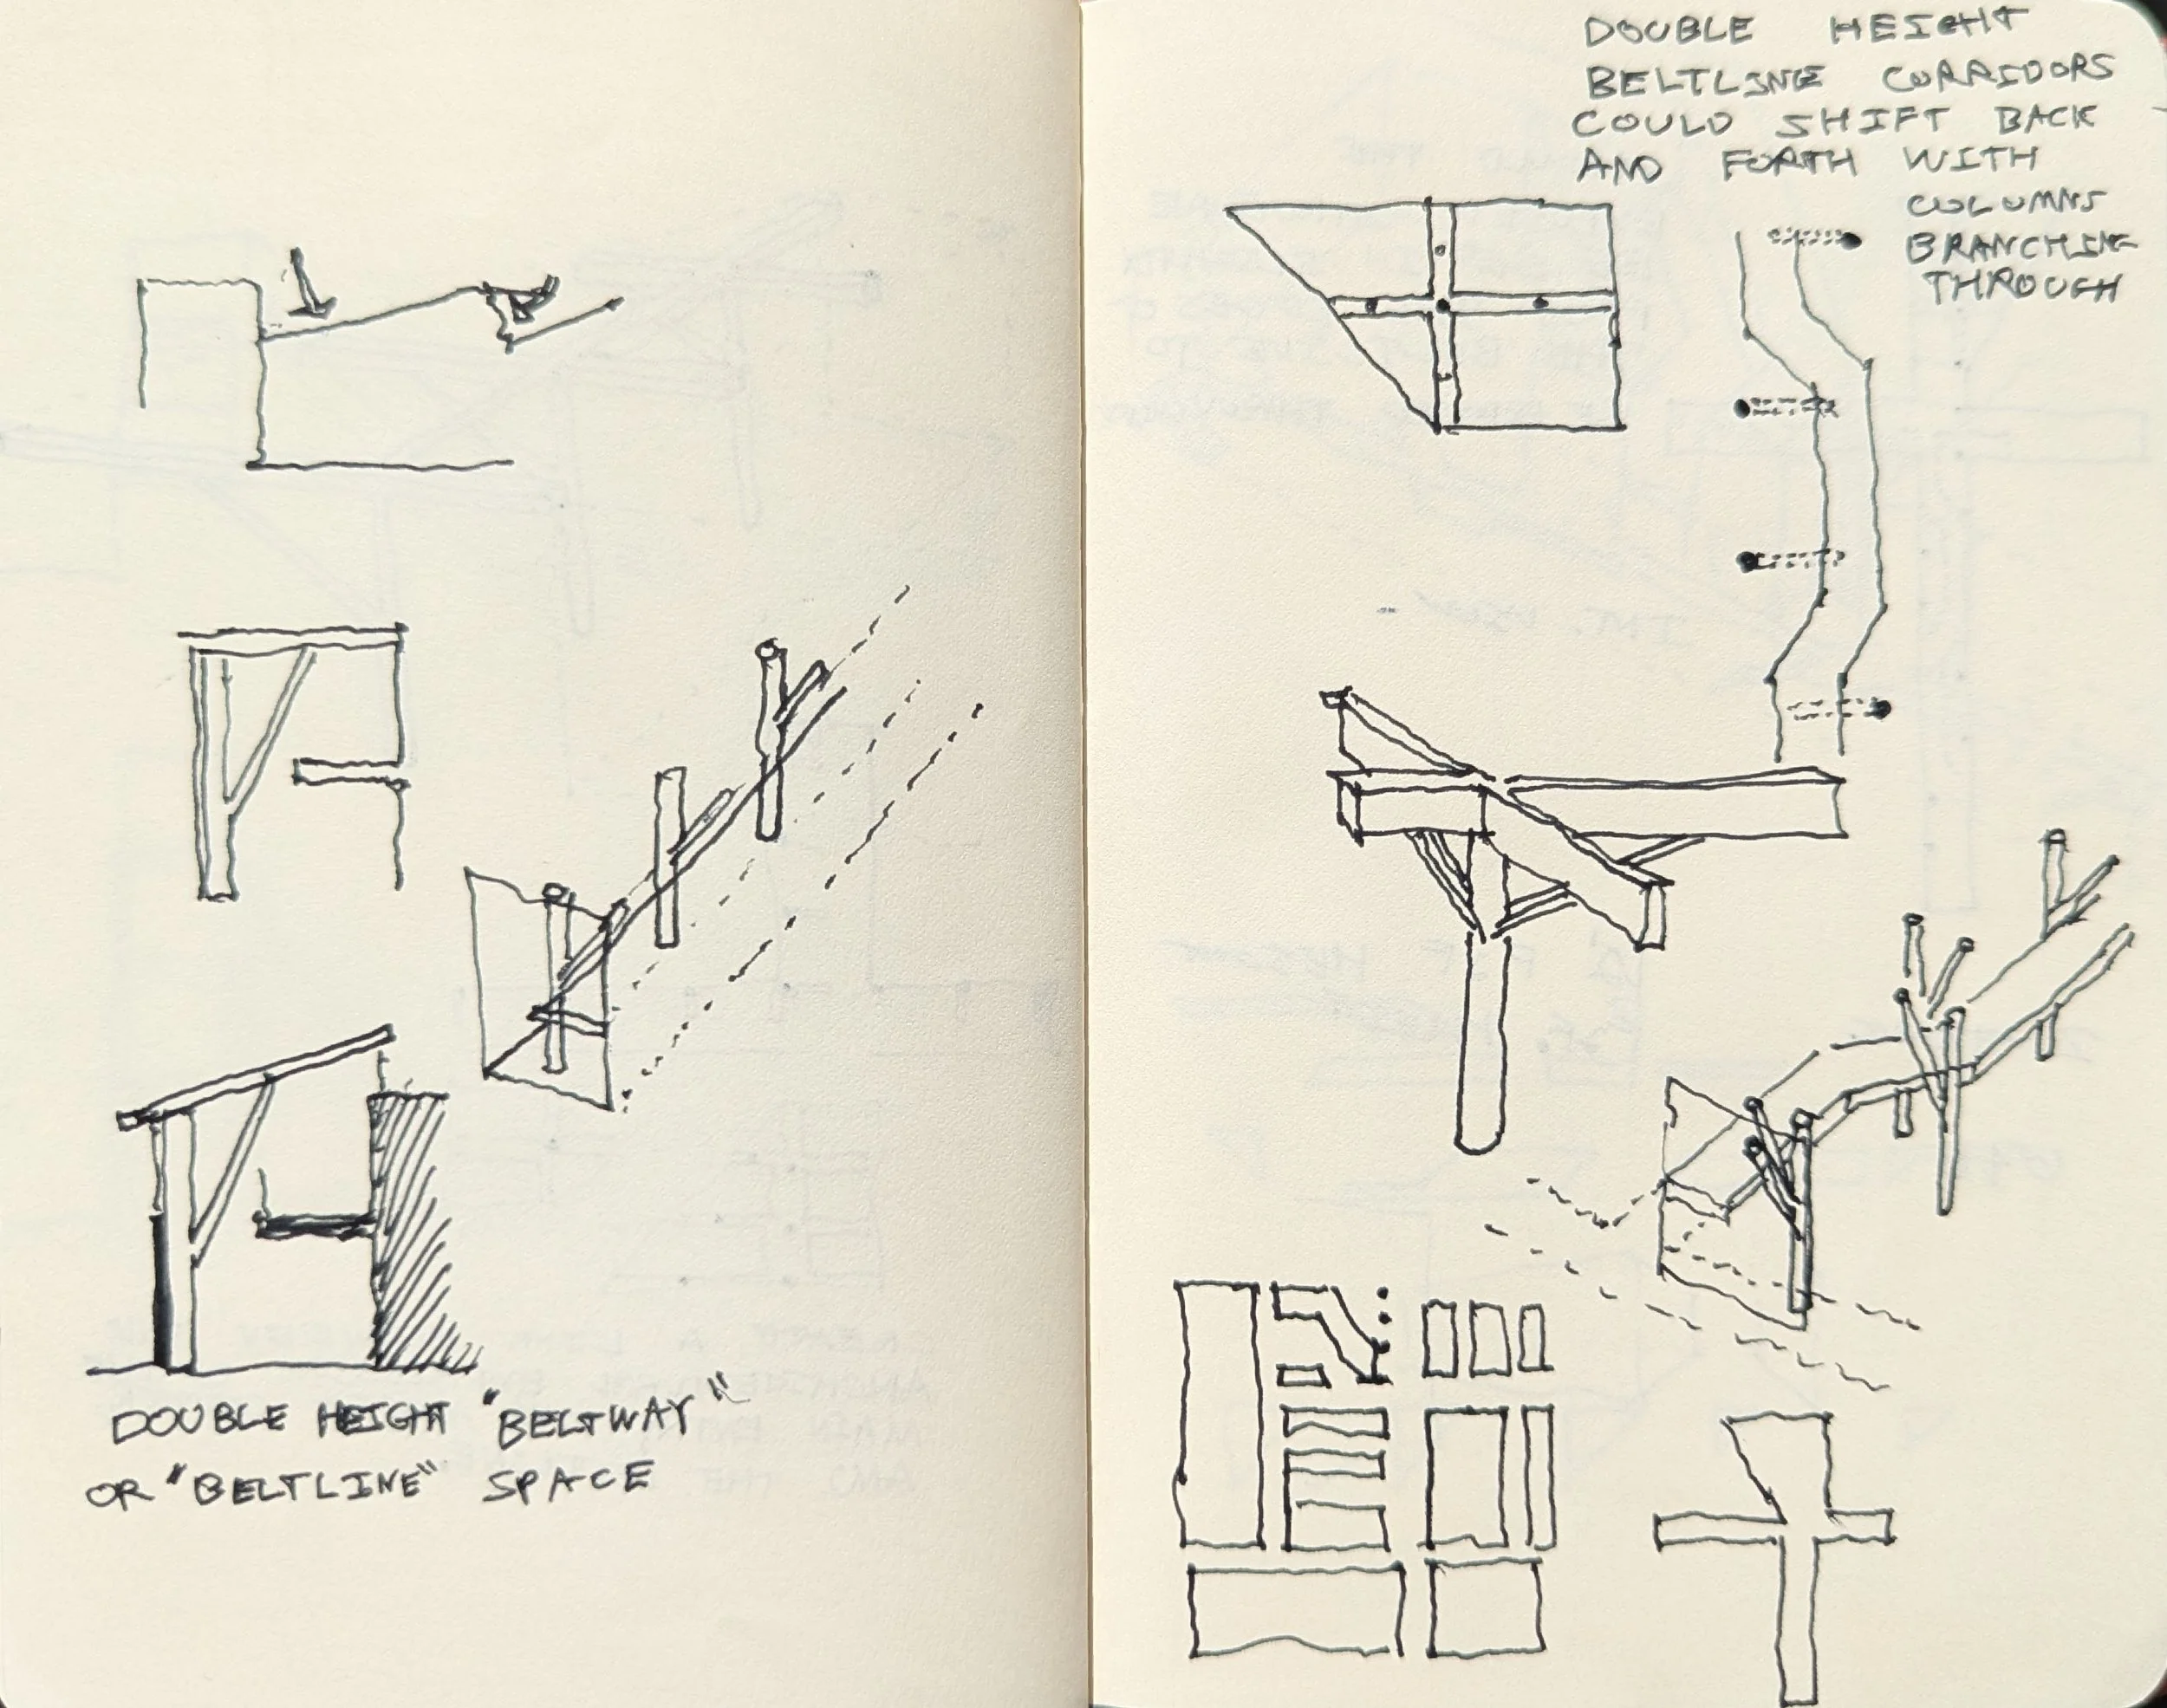 DOUBLE HEIGHT "BELTWAY"
OR "BELTLINE" SPACE
DOUBLE HEIGHT
BELTLINE CORRIDORS
COULD SHIFT BACK
AND FORTH WITH
COLUMNS
BRANCHING
THROUGH